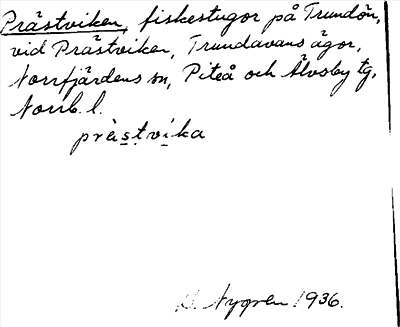 Prästviken, fiskestugor på Trundön,
vid Prästviken, Trundavans ägor,
Norrfjärdens sn, Piteå och Älvsby tg,
Norrb. l.
prästvika
Nygren 1936.